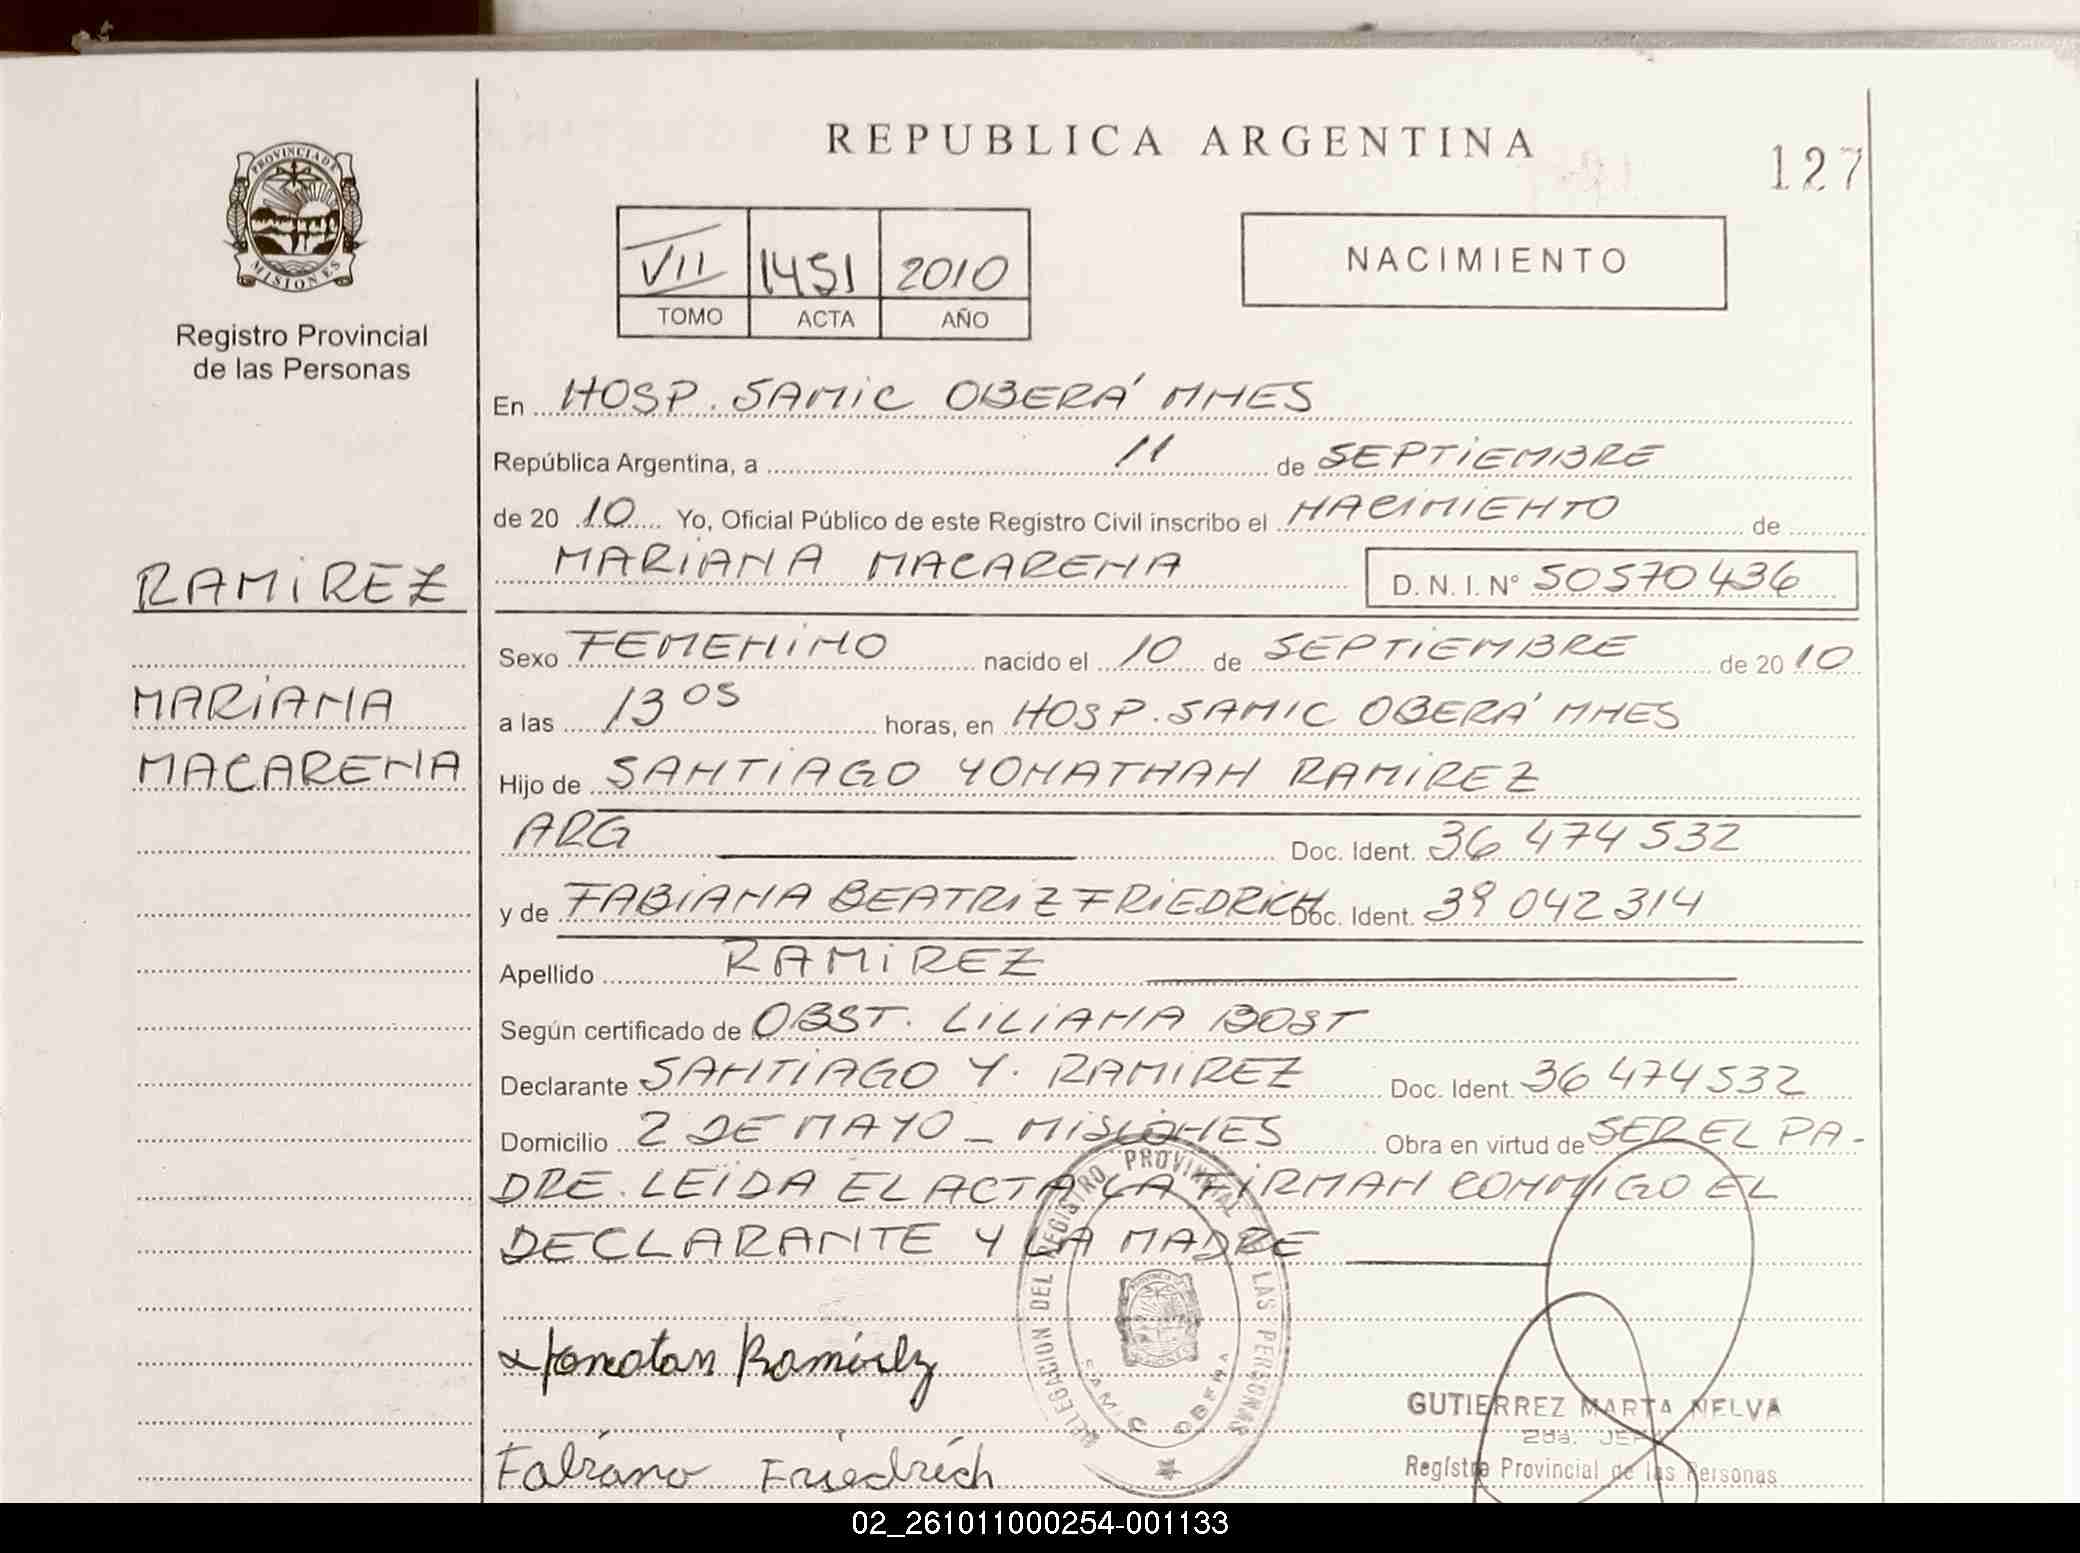 REPUBLICA ARGENTINA
127
PROVINCIA DE
MISIONES
Registro Provincial
de las Personas
VII 1451 2010
TOMO ACTA AÑO
NACIMIENTO
En HOSP. SAMIC OBERÁ MNES
República Argentina, a 11 de SEPTIEMBRE
de 2010 Yo, Oficial Público de este Registro Civil inscribo el NACIMIENTO de
MARIANA MACARENA D. N. I. N° 50570436
RAMIREZ
MARIANA
MACARENA
Sexo FEMENINO nacido el 10 de SEPTIEMBRE de 2010
a las 13 05 horas, en HOSP. SAMIC OBERÁ MNES
Hijo de SANTIAGO YONATHAN RAMIREZ
ARG Doc. Ident. 36 474 532
y de FABIANA BEATRIZ FRIEDRICH Doc. Ident. 39 042 314
Apellido RAMIREZ
Según certificado de OBST. LILIANA BOST
Declarante SANTIAGO Y. RAMIREZ Doc. Ident. 36 474 532
Domicilio 2 DE MAYO - MISIONES Obra en virtud de SER EL PA-
DRE. LEIDA EL ACTA LA FIRMAN CONMIGO EL
DECLARANTE Y LA MADRE
DELEGACION DEL REGISTRO PROVINCIAL DE LAS PERSONAS
SAMIC OBERA
Ramirez
Fabiana Friedrich
GUTIERREZ MARTA NELVA
2da. JEFA
Registro Provincial de las Personas
02_261011000254-001133